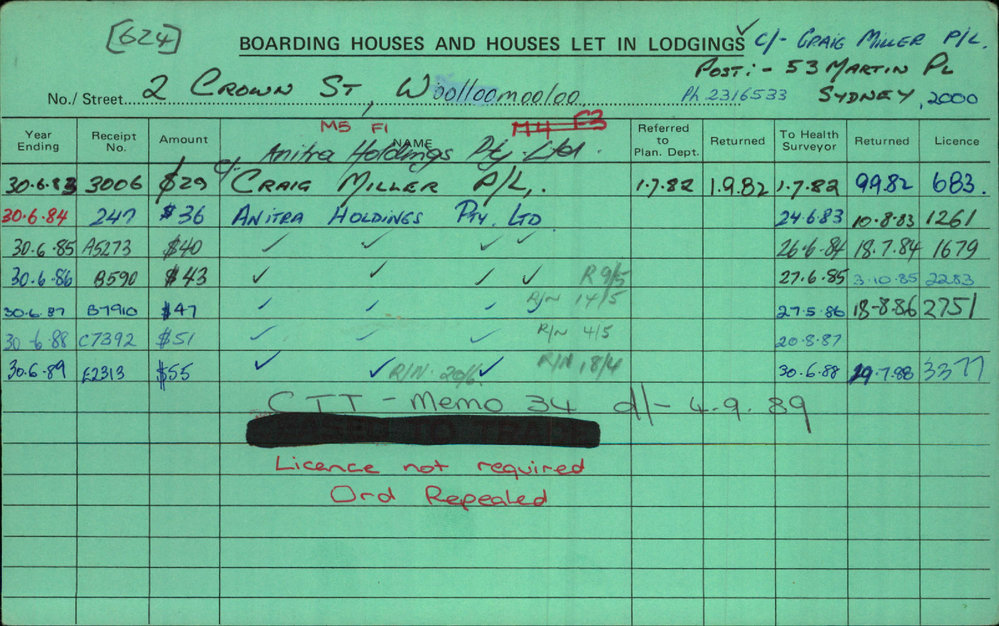 [624]
BOARDING HOUSES AND HOUSES LET IN LODGINGS ✓ C/- CRAIG MILLER P/L.
POST:- 53 MARTIN PL
No./Street 2 CROWN ST, Woolloomooloo Ph 2316533 SYDNEY, 2000
Year Ending Receipt No. Amount NAME Referred to Plan. Dept. Returned To Health Surveyor Returned Licence
M5 F1 M4 F3
Anitra Holdings Pty. Ltd.
30.6.83 3006 $29 C/- CRAIG MILLER P/L,. 1.7.82 1.9.82 1.7.82 9982 683.
30.6.84 247 $36 ANITRA HOLDINGS PTY. LTD 24.6.83 10.8.83 1261
30.6.85 A5273 $40 ✓ ✓ ✓ ✓ 26.6.84 18.7.84 1679
30.6.86 B590 $43 ✓ ✓ ✓ ✓ R 9/5 27.6.85 3.10.85 2283
30.6.87 B7910 $47 ✓ ✓ ✓ R/N 14/5 27.5.86 18-8-86 2751
30.6.88 C7392 $51 ✓ ✓ ✓ R/N 4/5 20.8.87
30.6.89 E2313 $55 ✓ ✓ R/N 20/6 ✓ R/N 18/4 30.6.88 19.7.88 3377
CTT - Memo 34 d/- 4.9.89
Licence not required
Ord Repealed